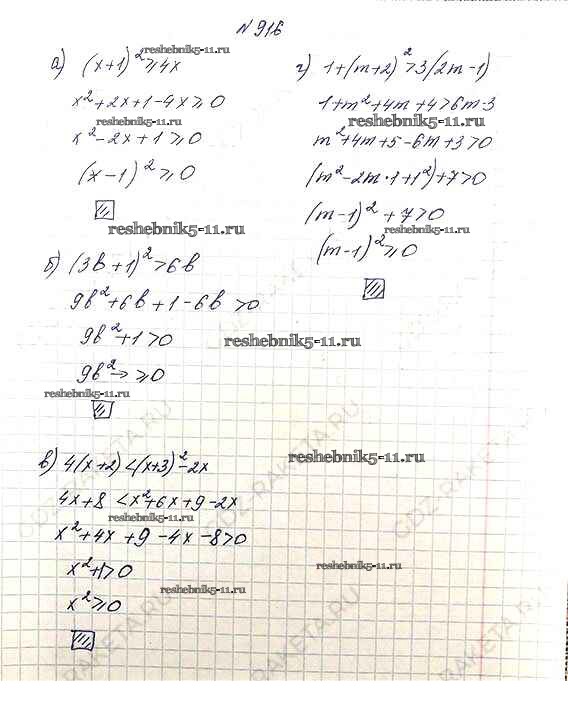 № 916
а) (x+1)² ≥ 4x
x² + 2x + 1 - 4x ≥ 0
x² - 2x + 1 ≥ 0
(x-1)² ≥ 0
б) (3b+1)² > 6b
9b² + 6b + 1 - 6b > 0
9b² + 1 > 0
9b² → ≥ 0
в) 4(x+2) < (x+3)² - 2x
4x + 8 < x² + 6x + 9 - 2x
x² + 4x + 9 - 4x - 8 > 0
x² + 1 > 0
x² ≥ 0
г) 1 + (m+2)² > 3(2m-1)
1 + m² + 4m + 4 > 6m - 3
m² + 4m + 5 - 6m + 3 > 0
(m² - 2m·1 + 1²) + 7 > 0
(m-1)² + 7 > 0
(m-1)² ≥ 0
reshebnik5-11.ru
reshebnik5-11.ru
reshebnik5-11.ru
reshebnik5-11.ru
reshebnik5-11.ru
reshebnik5-11.ru
reshebnik5-11.ru
reshebnik5-11.ru
reshebnik5-11.ru
reshebnik5-11.ru
reshebnik5-11.ru
GDZ-RAKETA.RU
GDZ-RAKETA.RU
GDZ-RAKETA.RU